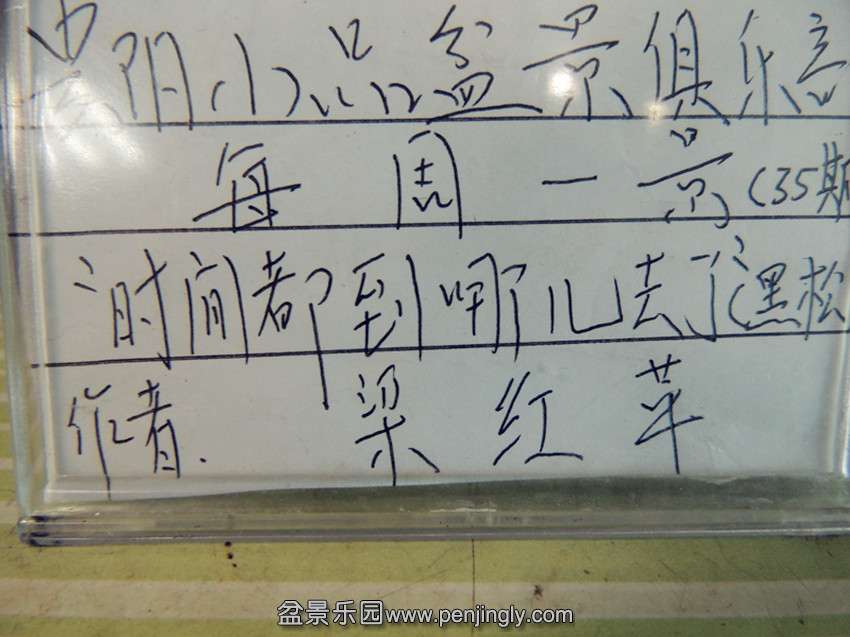 贵阳小品盆景俱乐部
每周一景(35期
“时间都到哪儿去了”(黑松
作者. 梁红苹
盆景乐园www.penjingly.com